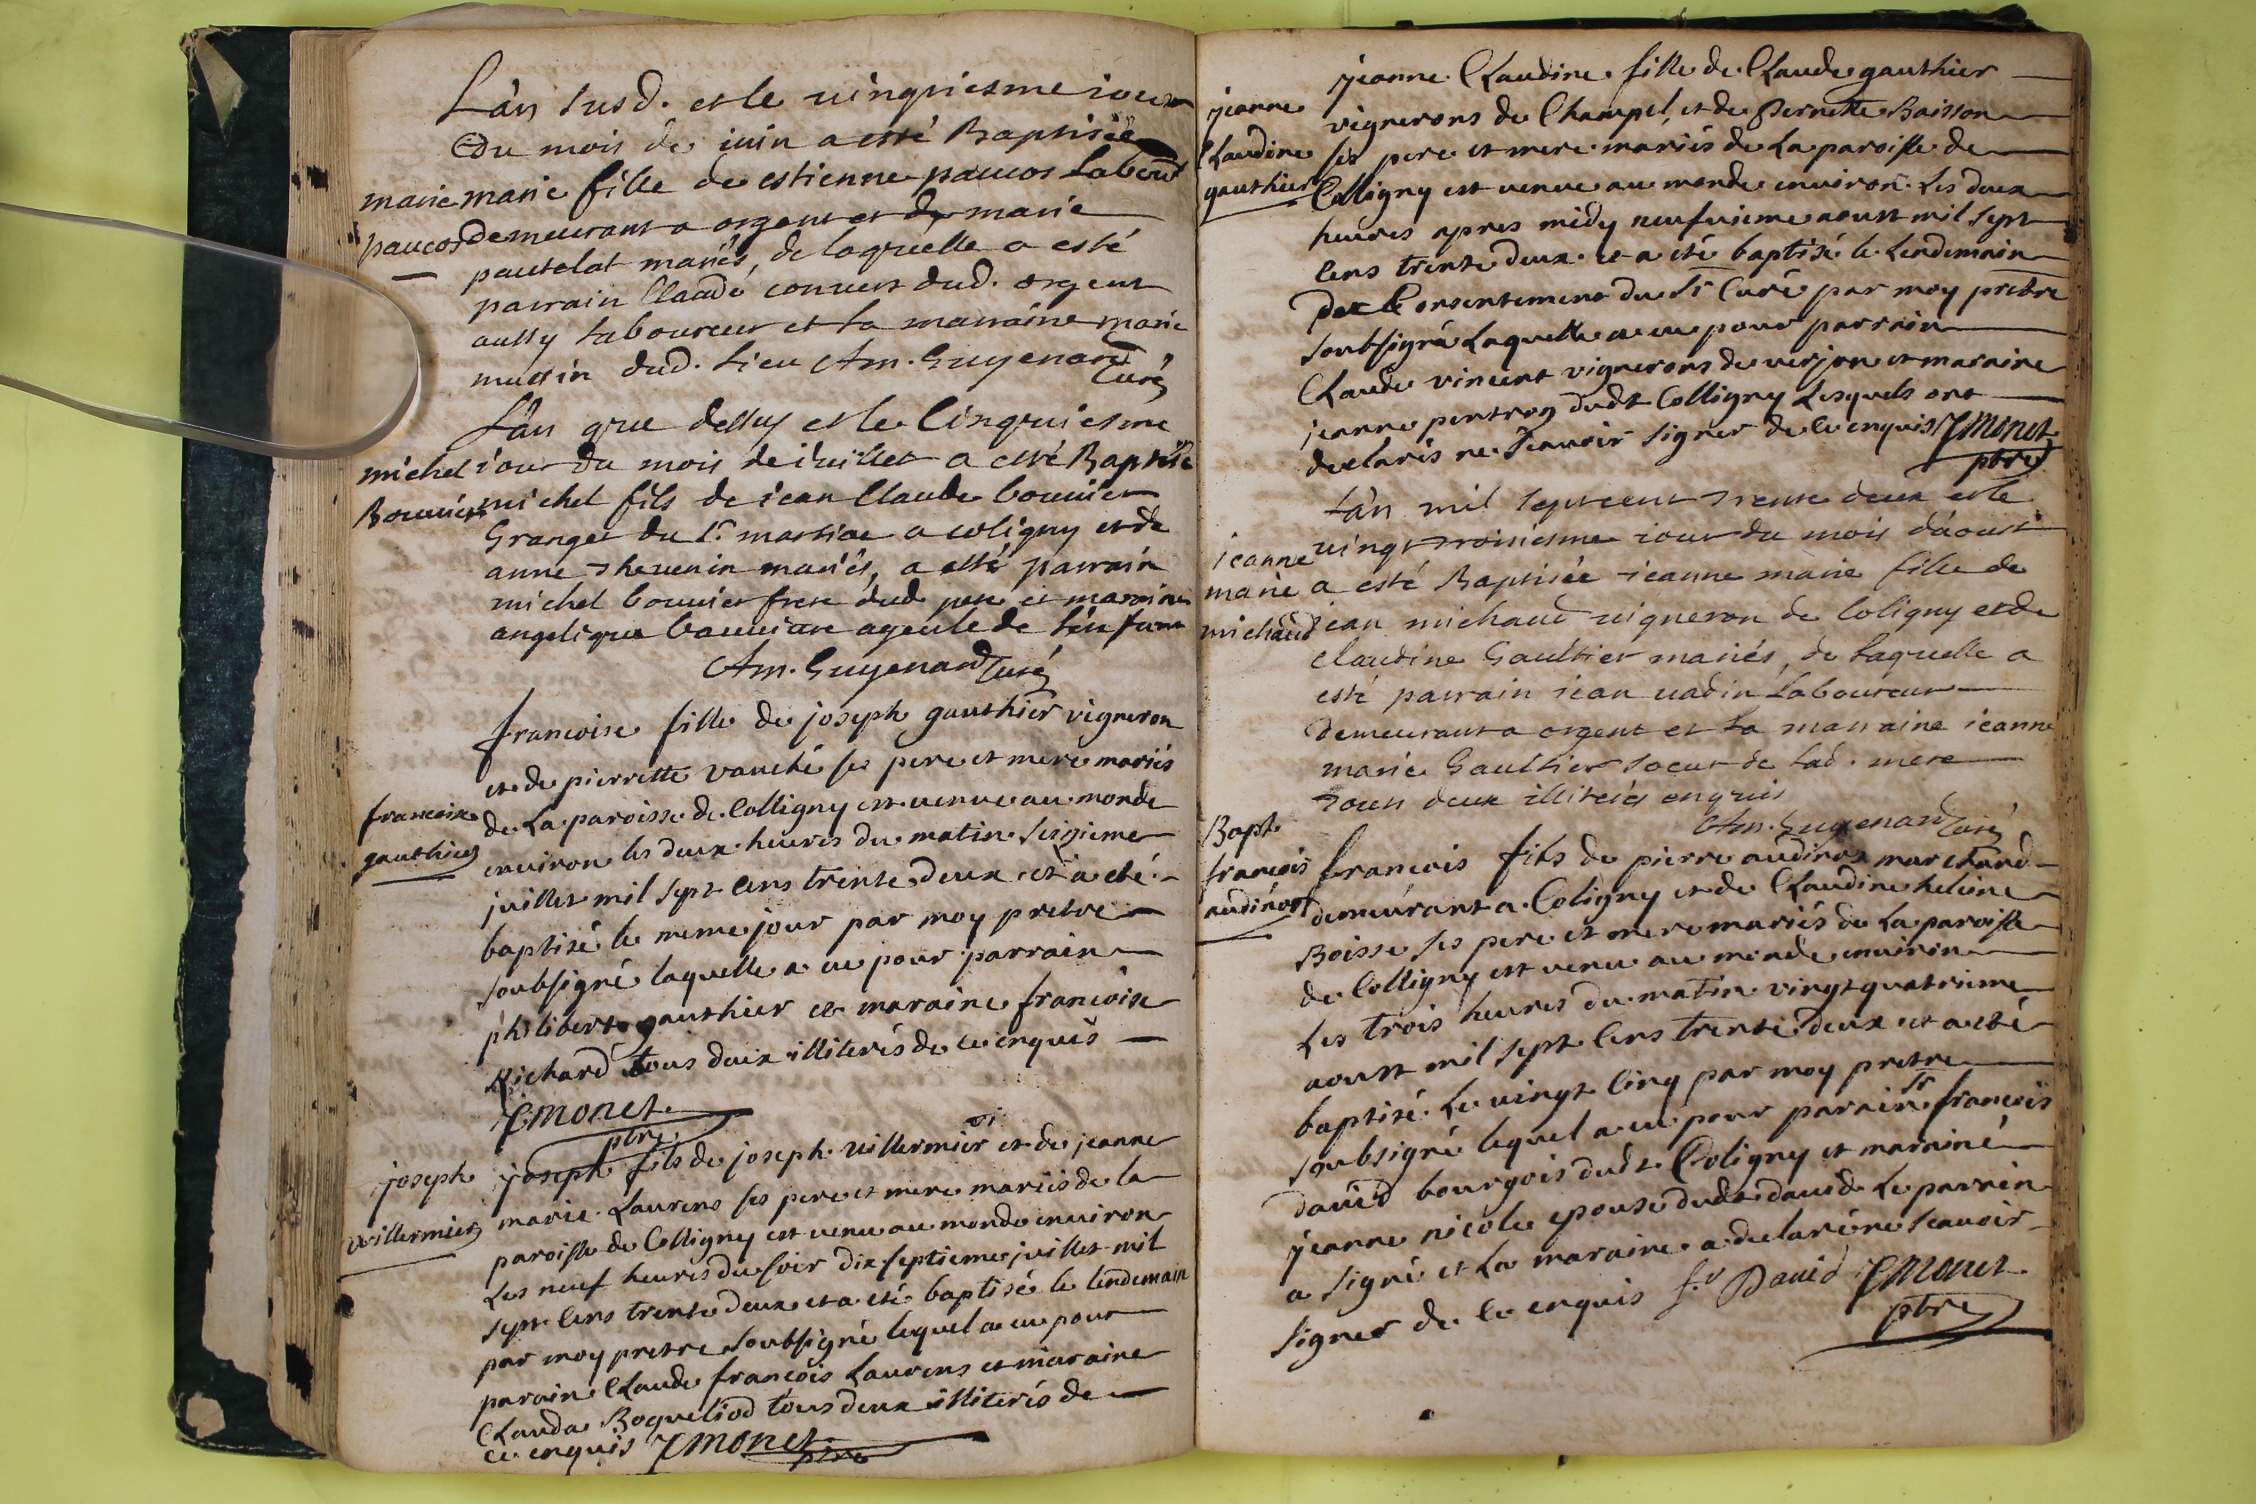 L'an susd. et le uingtiesme iour
du mois de iuin a esté Baptisée
marie paucor
marie fille de estienne paucor Labour
demeurant a orgent et de marie
pautelat mariés, de laquelle a esté
parrain Claude conuert dud. orgent
aussy laboureur et la marraine marie
mussin dud. lieu Am. Guyenard
Curé
L'an que dessus et le Cinquiesme
michel Bouuier
iour du mois de iuillet a esté Baptisé
michel fils de iean Claude bouuier
Granger du Sr. martine a coligny et de
anne theuenin mariés, a esté parrain
michel bouuier frere dud. pere et marraine
angelique bouuiere ayeule de l'enfant
Am. Guyenard Curé
francoise fille de joseph gauthier vigneron
et de pierrette vauché ses pere et mere mariés
francoise gauthier
de La paroisse de Colligny est venue au monde
environ les deux heures du matin seizieme
juillet mil sept cens trente deux et a eté
baptisé le meme jour par moy pretre
soubsigné laquelle a eu pour parrain
philibert gauthier et maraine francoise
Richard tous deux illiterés de ce enquis
Emonet
ptre
joseph villermier
joseph fils de joseph villermier et de jeanne
marie Laurens ses pere et mere mariés de la
paroisse de Colligny est venu au monde environ
Les neuf heures du soir dix septieme juillet mil
sept cens trente deux et a eté baptisé le lendemain
par moy pretre soubsigné lequel a eu pour
parain Claude francois Laurens et maraine
Clauda Boqueliod tous deux illiterés de
ce enquis Emonet
ptre
jeanne Claudine gauthier
jeanne Claudine fille de Claude gauthier
vignerons de Champel, et de Pernette Baisson
ses pere et mere mariés de La paroisse de
Colligny est venue au monde environ Les deux
heures apres midy neufvieme aoust mil sept
cens trente deux et a eté baptisé le Lendemain
de Consentement du Sr Curé par moy pretre
soubsigné Laquelle a eu pour parrain
Claude vincent vignerons de verjon et maraine
jeanne pentroz dudt Colligny Lesquels ont
declaris ne scavoir signer de ce enquis Emonet
ptre
L'an mil sept cent trente deux et le
uingt troisiesme iour du mois d'aoust
ieanne marie michaud
a esté Baptisée ieanne marie fille de
iean michaud uigneron de Coligny et de
claudine Gaultier mariés, de laquelle a
esté parrain iean uadin Laboureur
demeurant a orgent et la marraine ieanne
marie Gaultier soeur de lad. mere
tous deux illiterés enquis
Am. Guyenard Curé
Bapt. francois audinot
francois fils de pierre audinot marchand
demeurant a Coligny et de Claudine helaine
Boisse ses pere et mere mariés de La paroisse
de Colligny est venu au monde environ
Les trois heures du matin vingt quatrieme
aoust mil sept cens trente deux et a eté
baptisé Le vingt cinq par moy pretre
soubsigné lequel a eu pour parain Sr francois
david bourgois dudt Coligny et maraine
jeanne nicole epouse dudt david Le parrain
a signé et La maraine a declaré ne scavoir
signer de ce enquis f. David Emonet
ptre